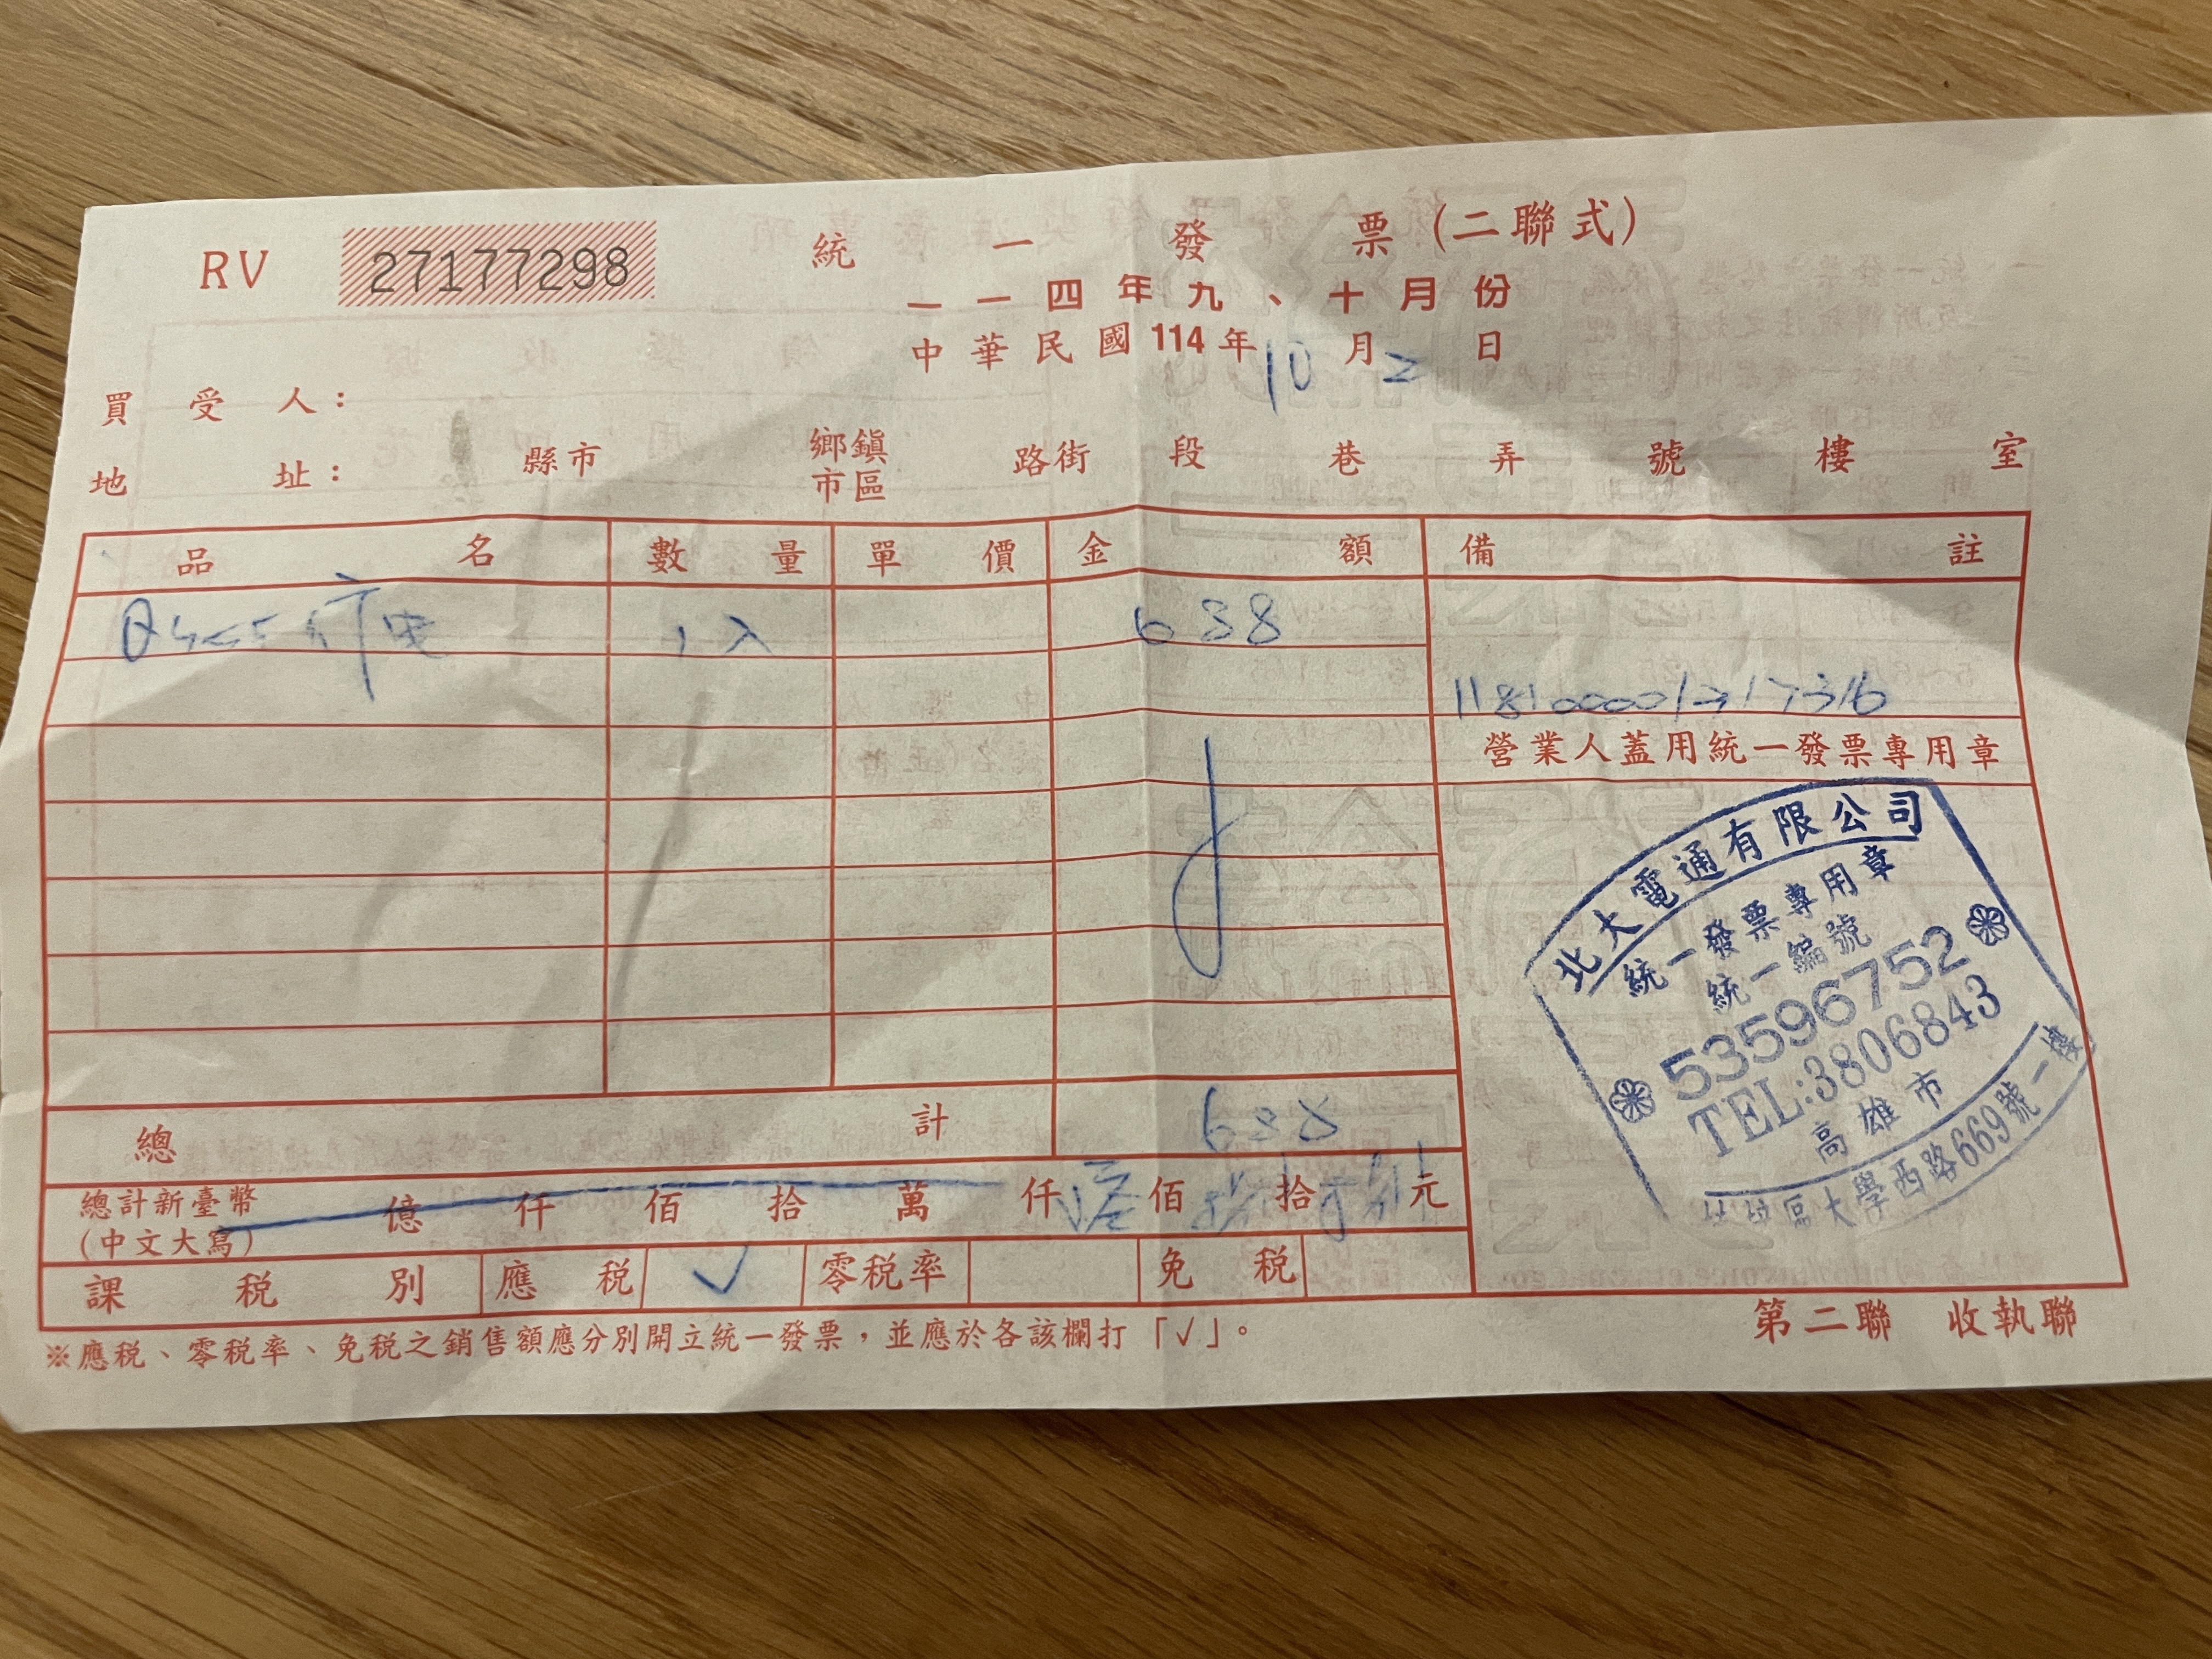 RV 27177298
統一發票(二聯式)
一一四年九、十月份
中華民國114年10月2日
買受人：
地址： 縣市 鄉鎮市區 路街 段 巷 弄 號 樓 室
品名 數量 單價 金額 備註
1入 638
營業人蓋用統一發票專用章
北大電通有限公司
統一發票專用章
統一編號
53596752
TEL:3806843
高雄市
區大學西路669號一樓
總計 638
總計新臺幣(中文大寫) 億 仟 佰 拾 萬 仟 佰 拾 元
課稅別 應稅 ✓ 零稅率 免稅
※應稅、零稅率、免稅之銷售額應分別開立統一發票，並應於各該欄打「✓」。
第二聯 收執聯